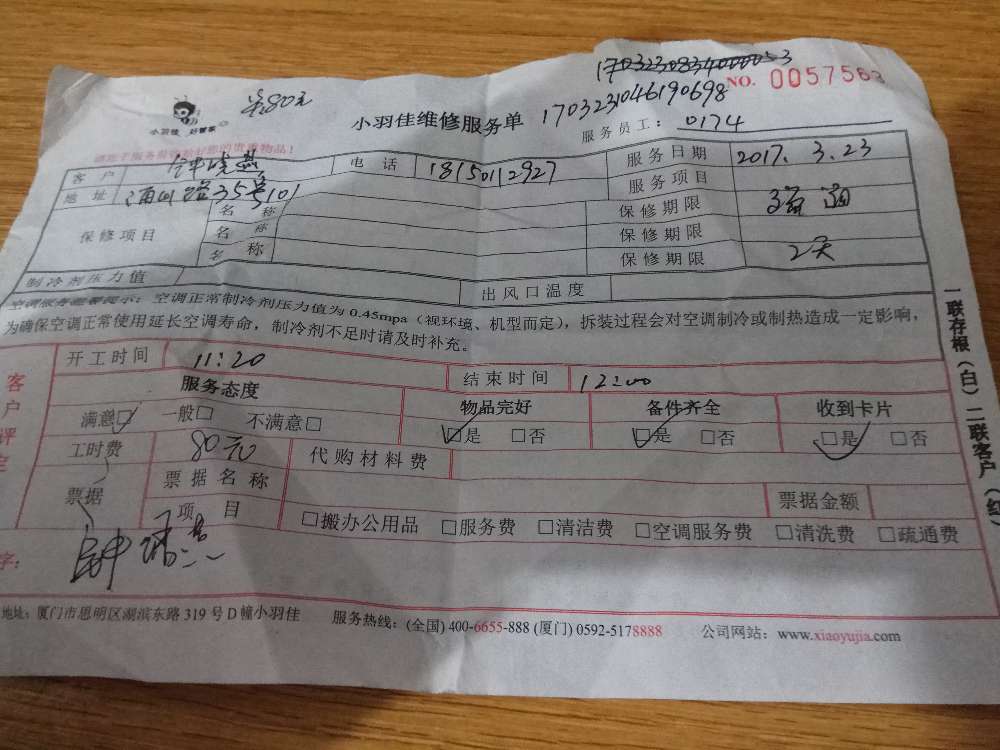 17032308340000053
NO. 0057563
小羽佳 好管家
小羽佳维修服务单 1703231046190698
服务员工： 0174
客户 钟晓燕 电话 18150112927 服务日期 2017.3.23
地址 35号101 服务项目
保修项目 名称 保修期限 疏通
名称 保修期限
名称 保修期限 2天
制冷剂压力值 出风口温度
空调服务温馨提示：空调正常制冷剂压力值为0.45mpa（视环境、机型而定），拆装过程会对空调制冷或制热造成一定影响，
为确保空调正常使用延长空调寿命，制冷剂不足时请及时补充。
开工时间 11:20 结束时间 12:00
客户评定
服务态度 物品完好 备件齐全 收到卡片
满意☑ 一般□ 不满意□ ☑是 □否 ☑是 □否 ☑是 □否
工时费 80元 代购材料费
票据 票据名称 票据金额
项目 □搬办公用品 □服务费 □清洁费 □空调服务费 □清洗费 □疏通费
字：
地址：厦门市思明区湖滨东路319号D幢小羽佳 服务热线：(全国) 400-6655-888 (厦门) 0592-5178888 公司网站：www.xiaoyujia.com
一联存根（白）二联客户（红